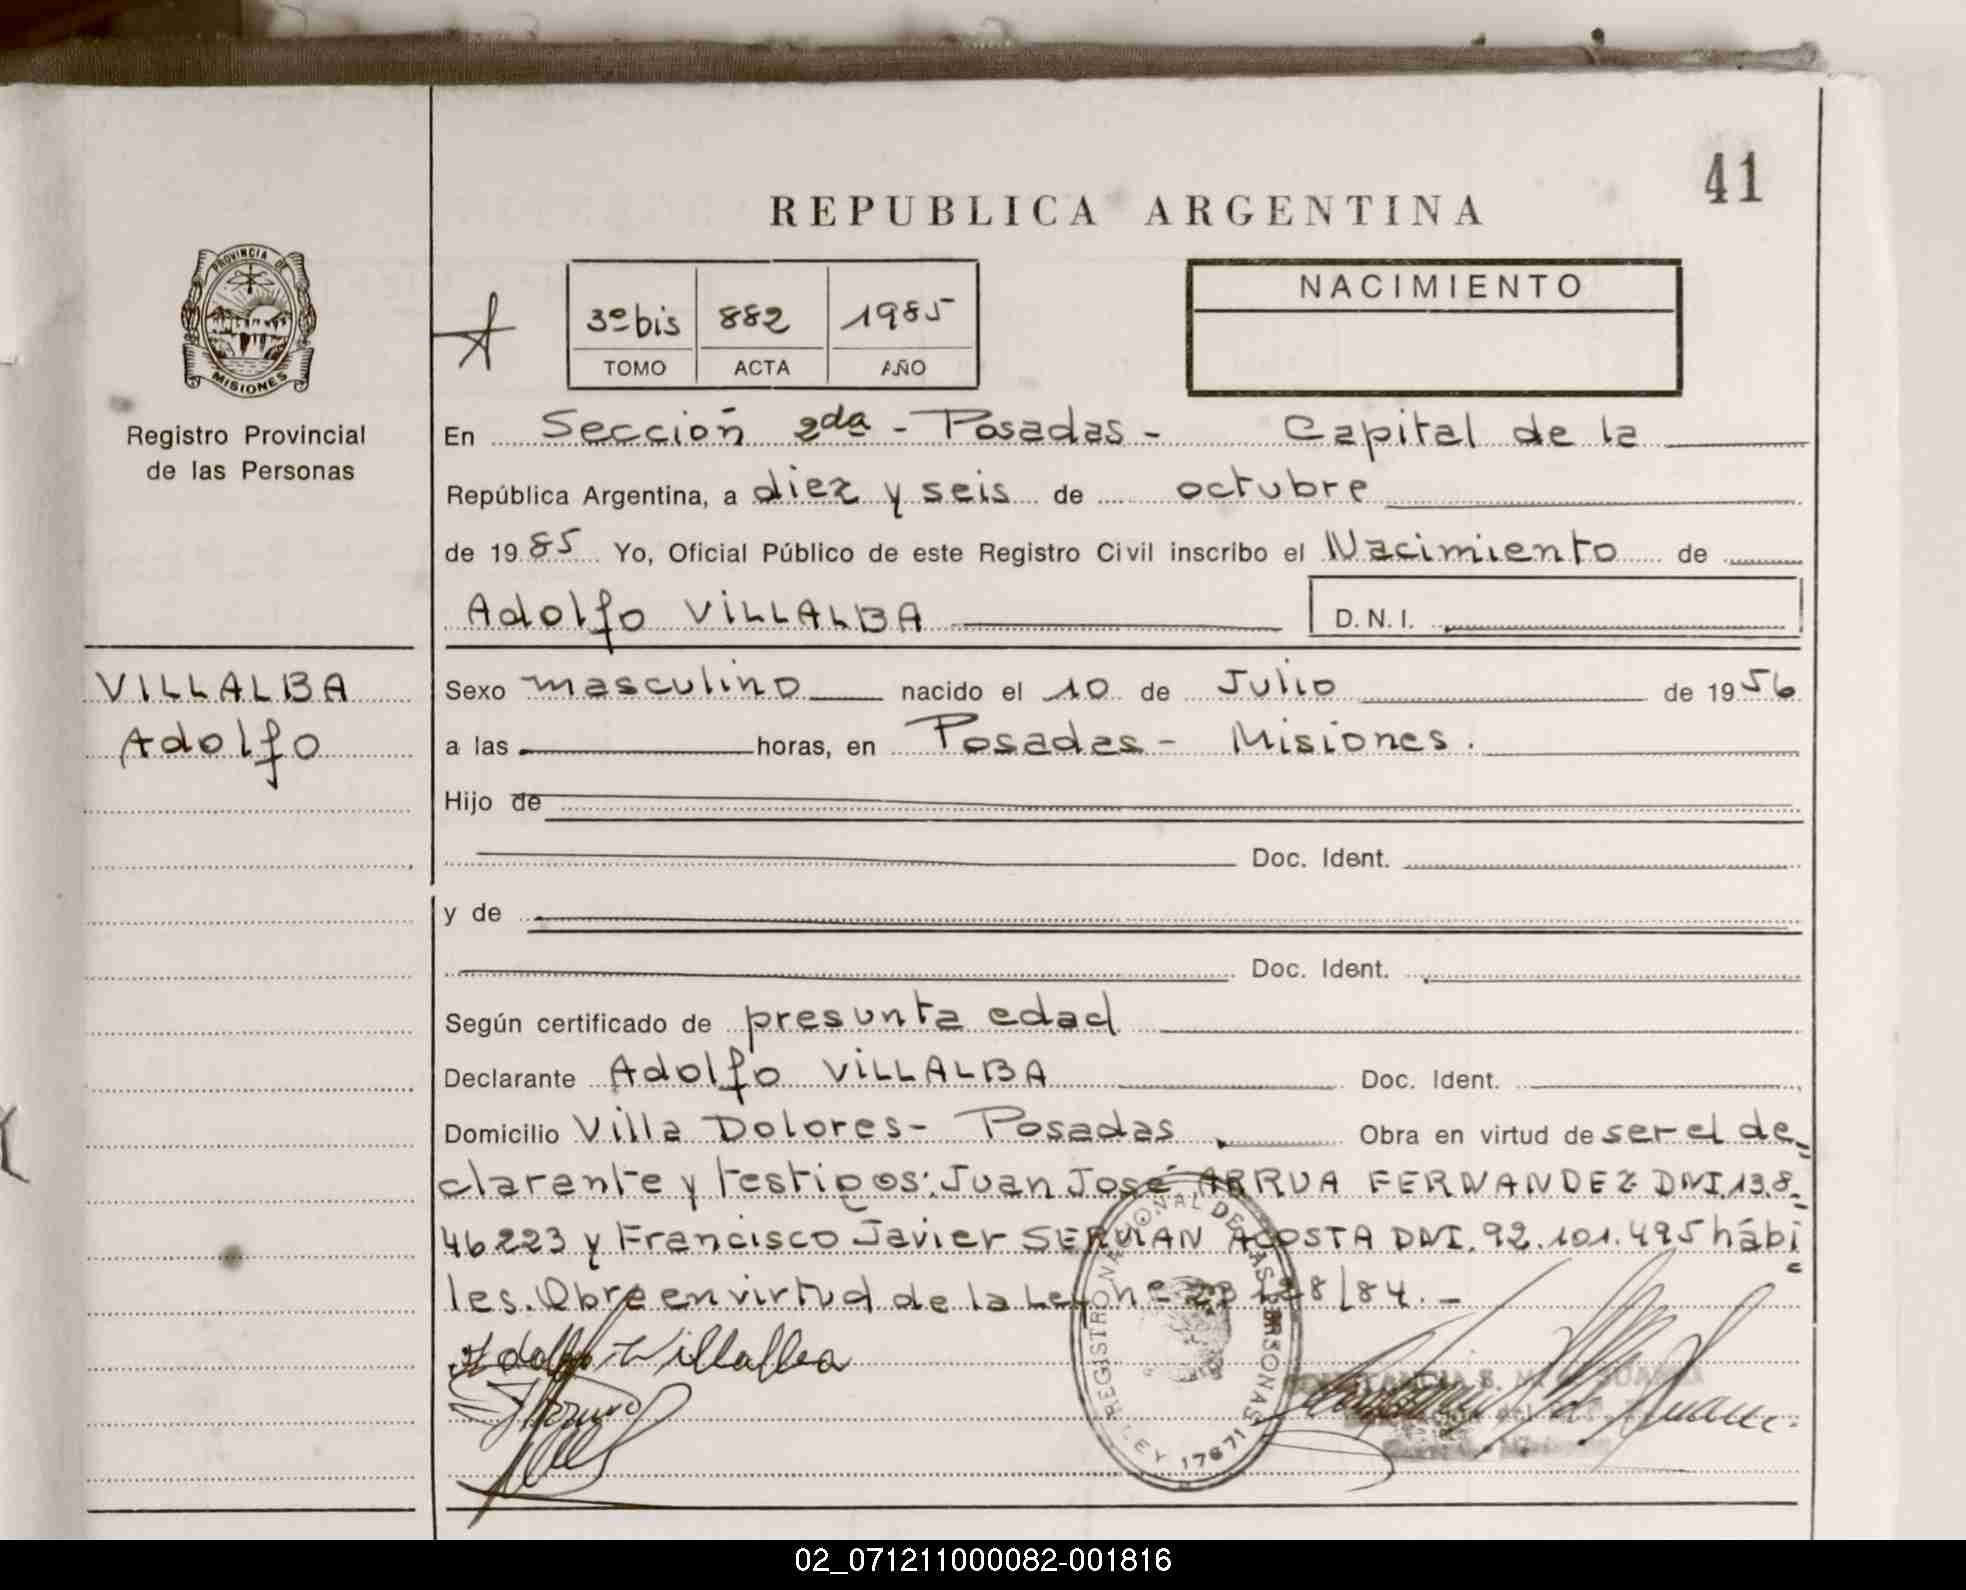 41
REPUBLICA ARGENTINA
PROVINCIA DE
MISIONES
Registro Provincial
de las Personas
3º bis 882 1985
TOMO ACTA AÑO
NACIMIENTO
En Sección 2da - Posadas - Capital de la
República Argentina, a diez y seis de octubre
de 1985 Yo, Oficial Público de este Registro Civil inscribo el Nacimiento de
Adolfo VILLALBA D.N.I.
VILLALBA
Adolfo
Sexo masculino nacido el 10 de Julio de 1956
a las horas, en Posadas - Misiones.
Hijo de
Doc. Ident.
y de
Doc. Ident.
Según certificado de presunta edad
Declarante Adolfo VILLALBA Doc. Ident.
Domicilio Villa Dolores - Posadas Obra en virtud de ser el de-
clarante y testigos: Juan José ARRUA FERNANDEZ DNI.13.8-
46223 y Francisco Javier SERVIAN ACOSTA DNI. 92.101.495 hábi
les. Obra en virtud de la Ley nº 23128/84. -
Adolfo Villalba
REGISTRO NACIONAL DE LAS PERSONAS
LEY 17671
02_071211000082-001816